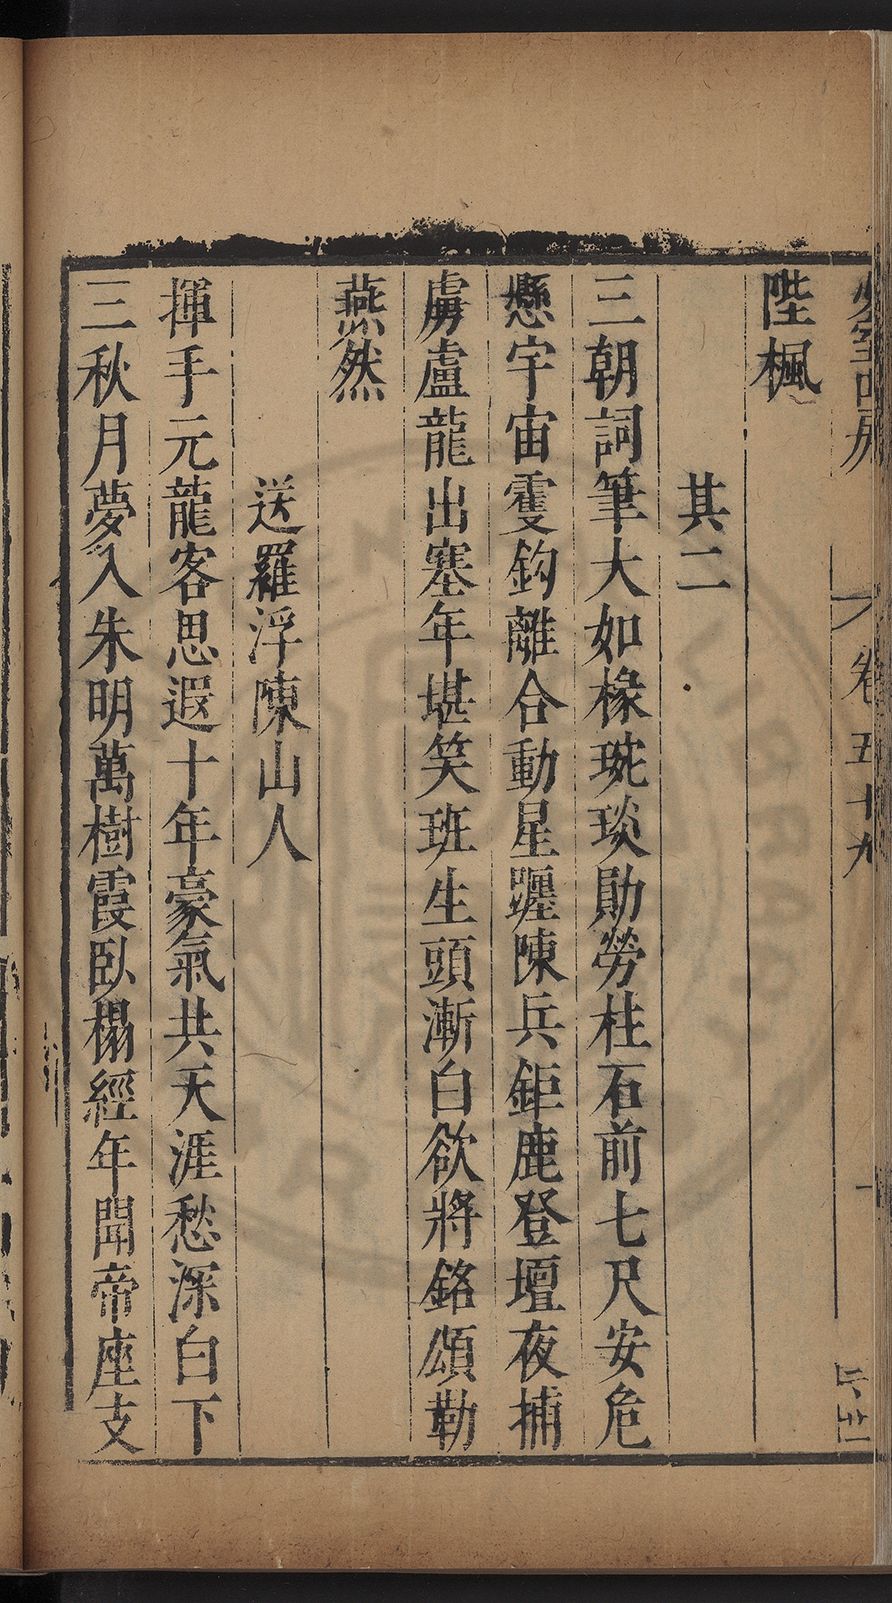 卷五十九
陛楓
其二
三朝詞筆大如椽琬琰勛勞柱石前七尺安危
懸宇宙雙鈎離合動星躔陳兵鉅鹿登壇夜捕
虜盧龍出塞年堪笑班生頭漸白欲將銘頌勒
燕然
送羅浮陳山人
揮手元龍客思遐十年豪氣共天涯愁深白下
三秋月夢入朱明萬樹霞臥榻經年聞帝座支